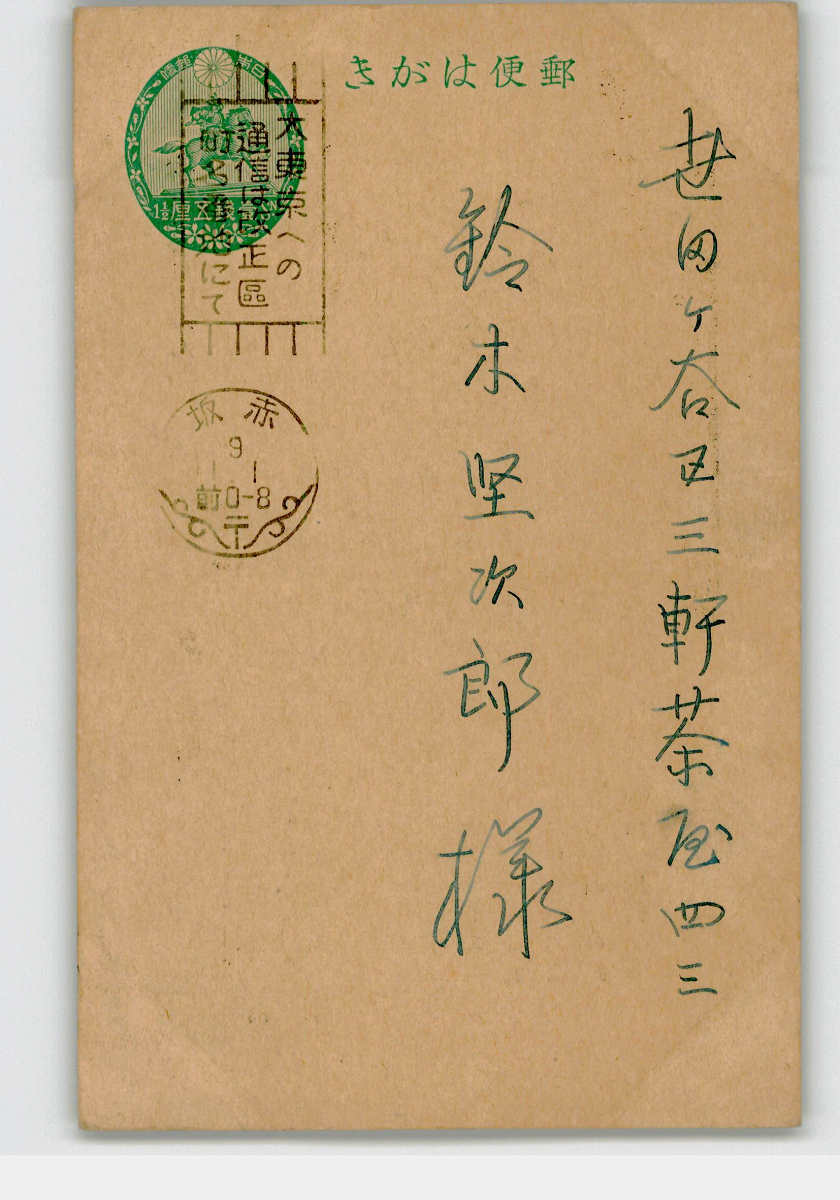 郵便はがき
世田ヶ谷区三軒茶屋四三
鈴木堅次郎様
大東京への
通信は改正區
町名番地にて
赤坂
9
1
前0-8
〒